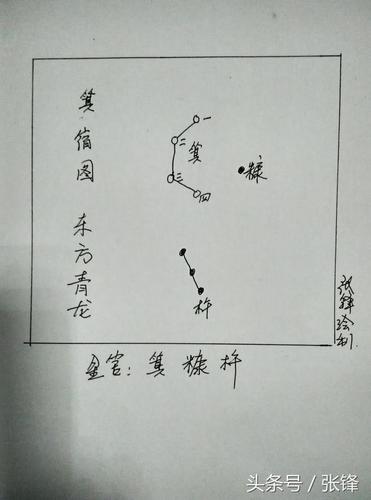 箕宿图 东方青龙
一
二
箕
三
四
糠
杵
张锋绘制
星官：箕 糠 杵
头条号 / 张锋